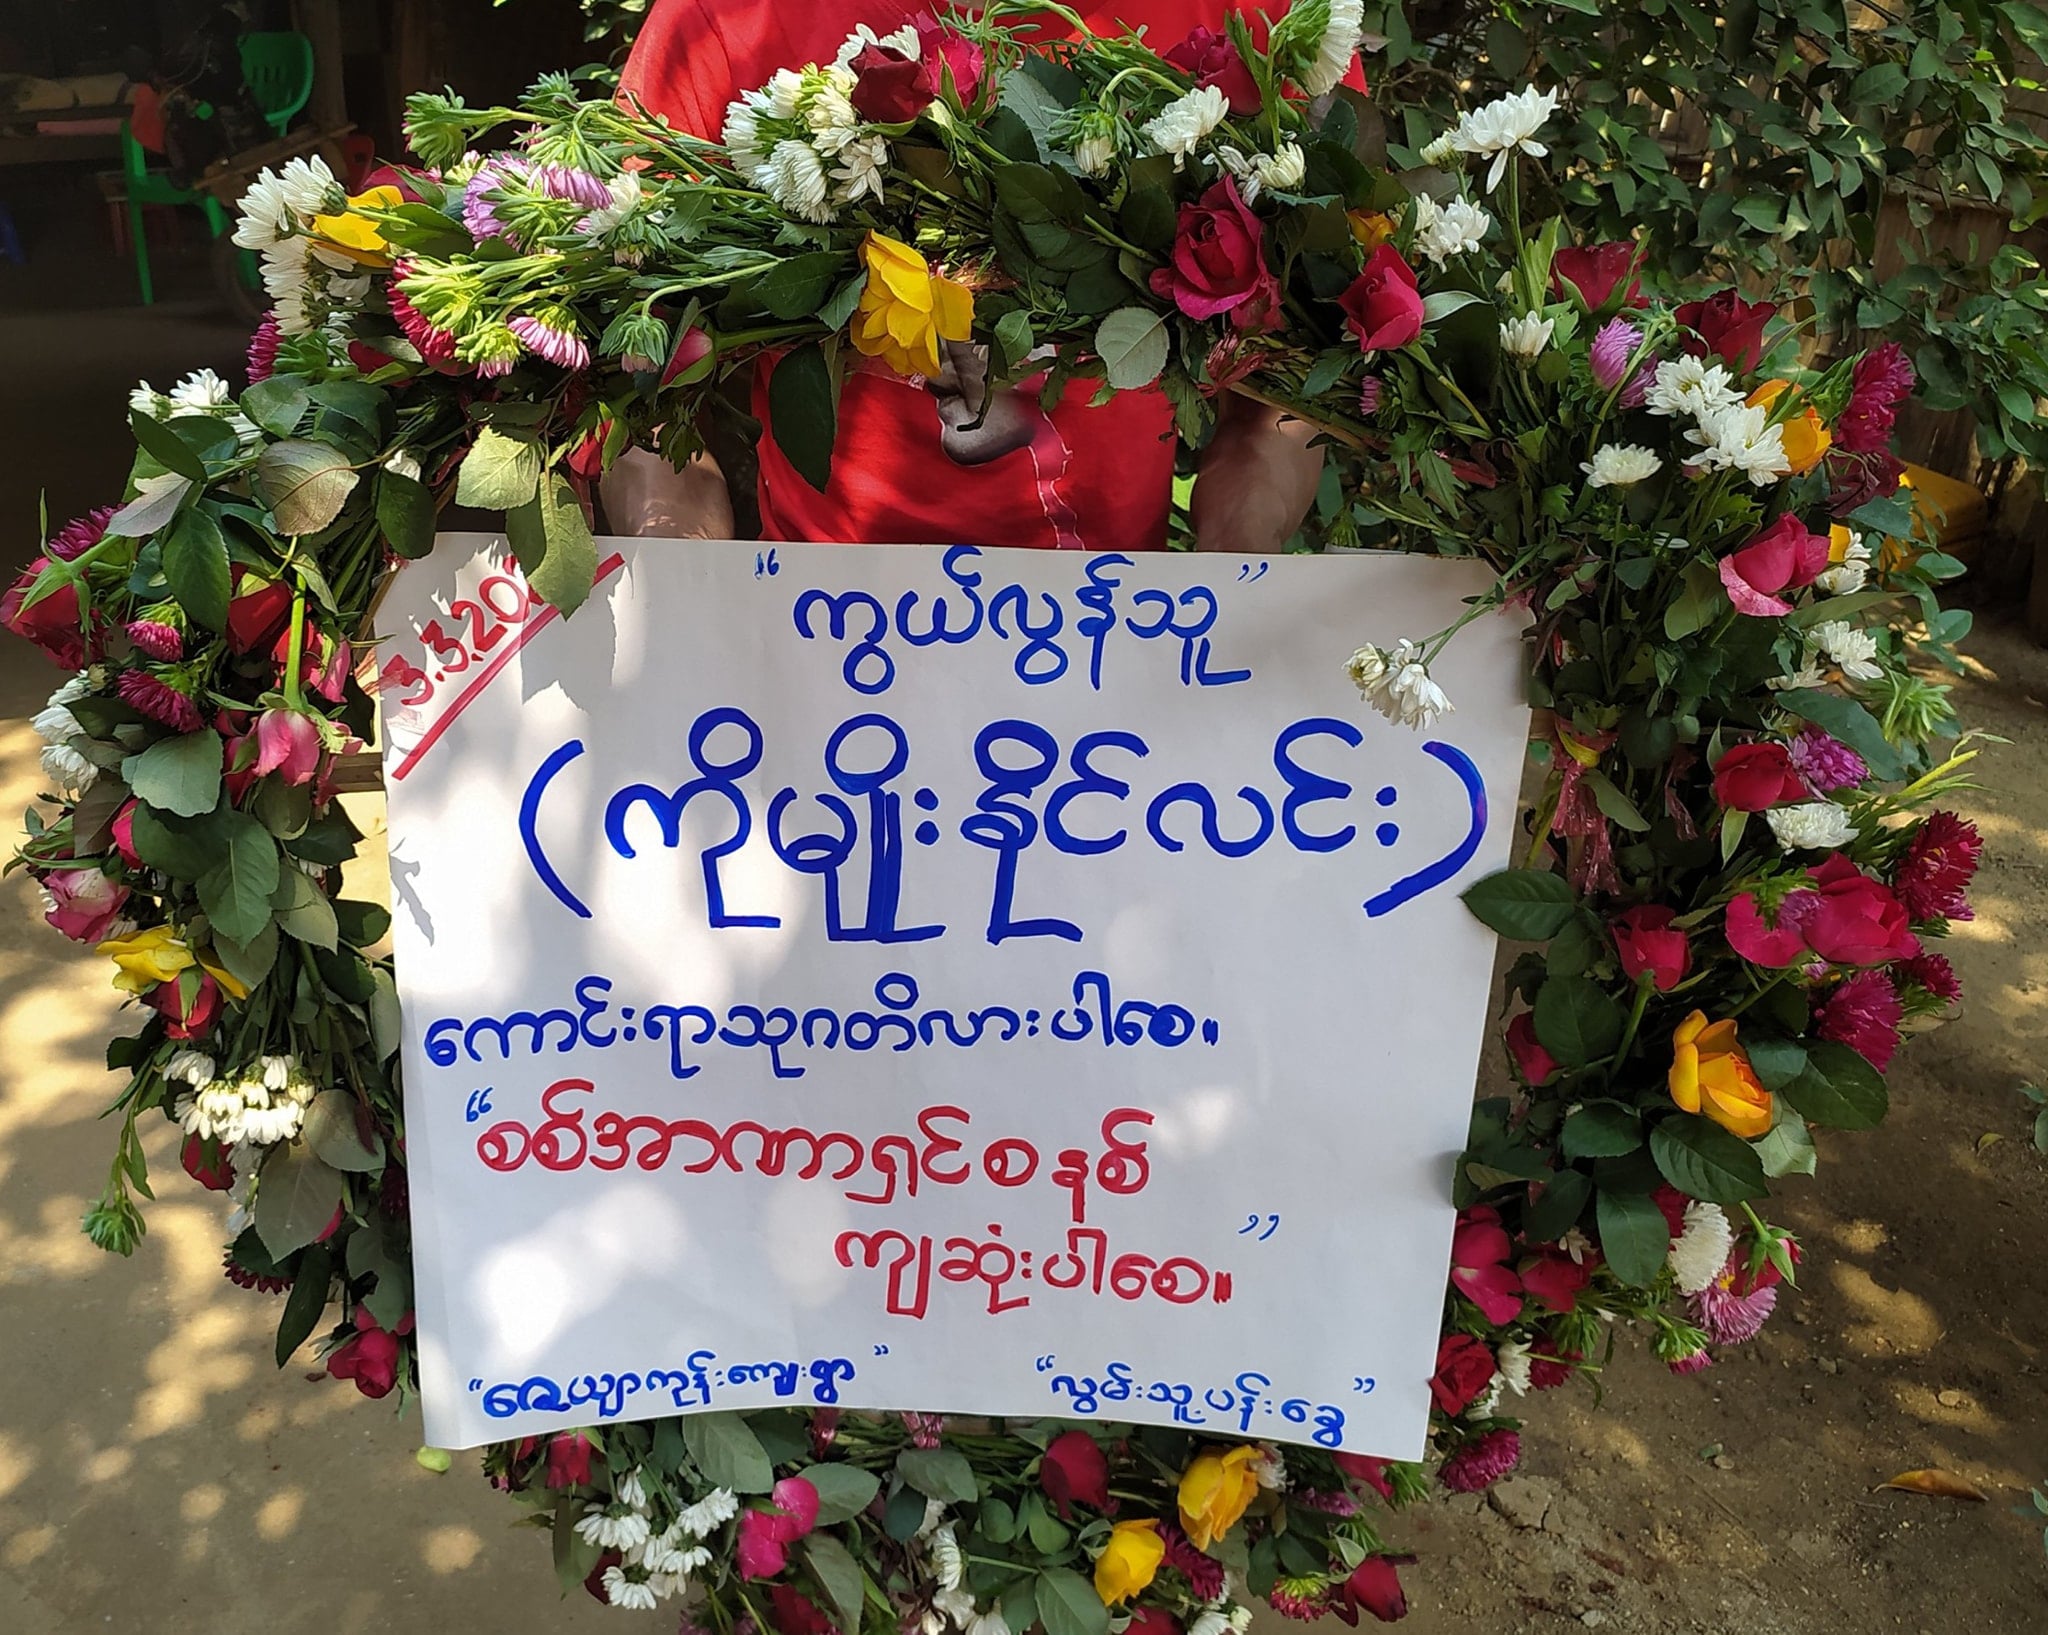 3.3.20
“ကွယ်လွန်သူ”
(ကိုမျိုးနိုင်လင်း)
ကောင်းရာသုဂတိလားပါစေ။
“စစ်အာဏာရှင်စနစ်
ကျဆုံးပါစေ။”
“ဇေယျာကုန်းကျေးရွာ” “လွမ်းသူ့ပန်းခွေ”